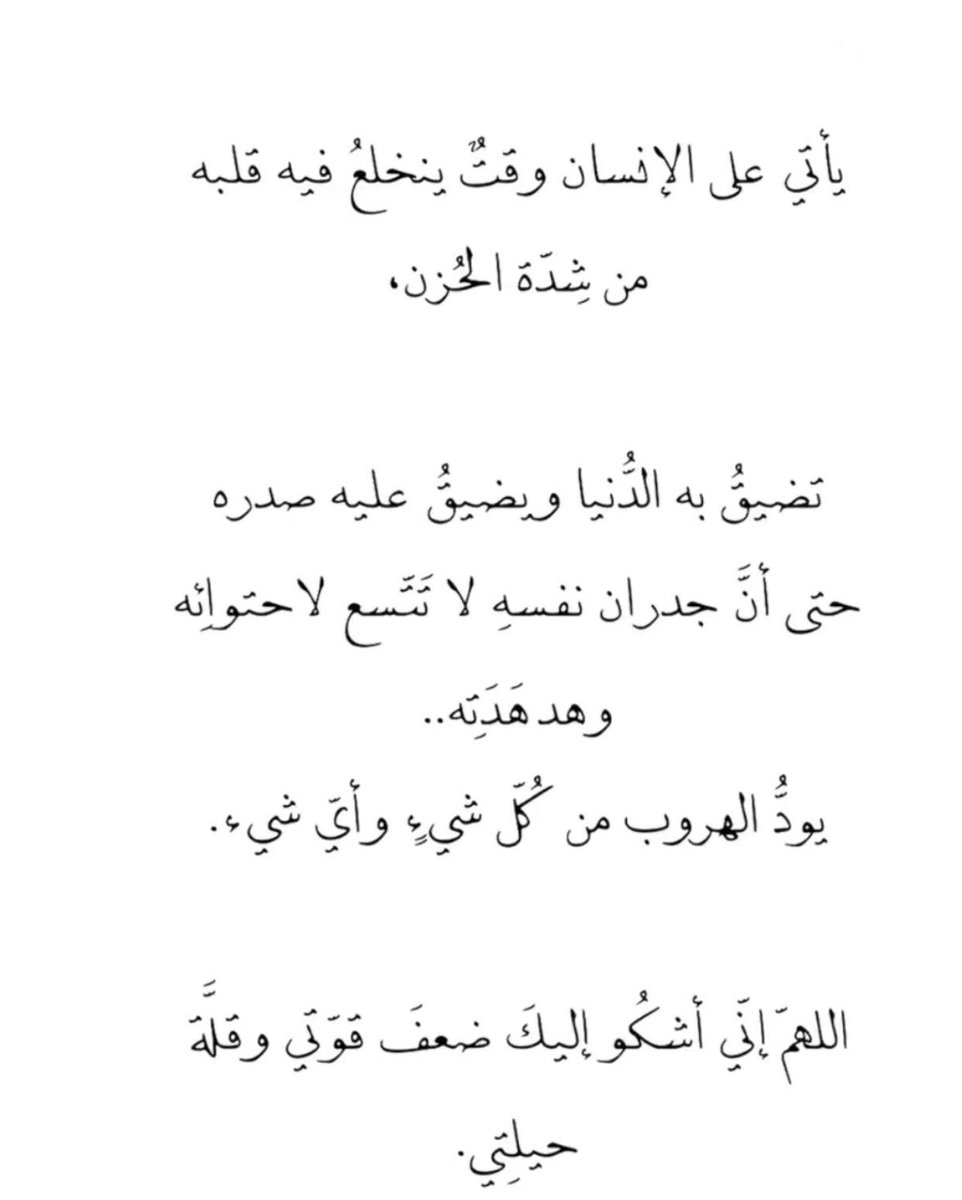 يأتي على الإنسان وقتٌ ينخلعُ فيه قلبه
من شِدّة الحُزن،
تضيقُ به الدُّنيا ويضيقُ عليه صدره
حتى أنَّ جدران نفسهِ لا تَتّسع لاحتوائِه
وهدهَدَتِه..
يودُّ الهروب من كُلّ شيءٍ وأيّ شيء.
اللهمّ إنّي أشكُو إليكَ ضعفَ قوّتي وقلَّة
حيلتِي.